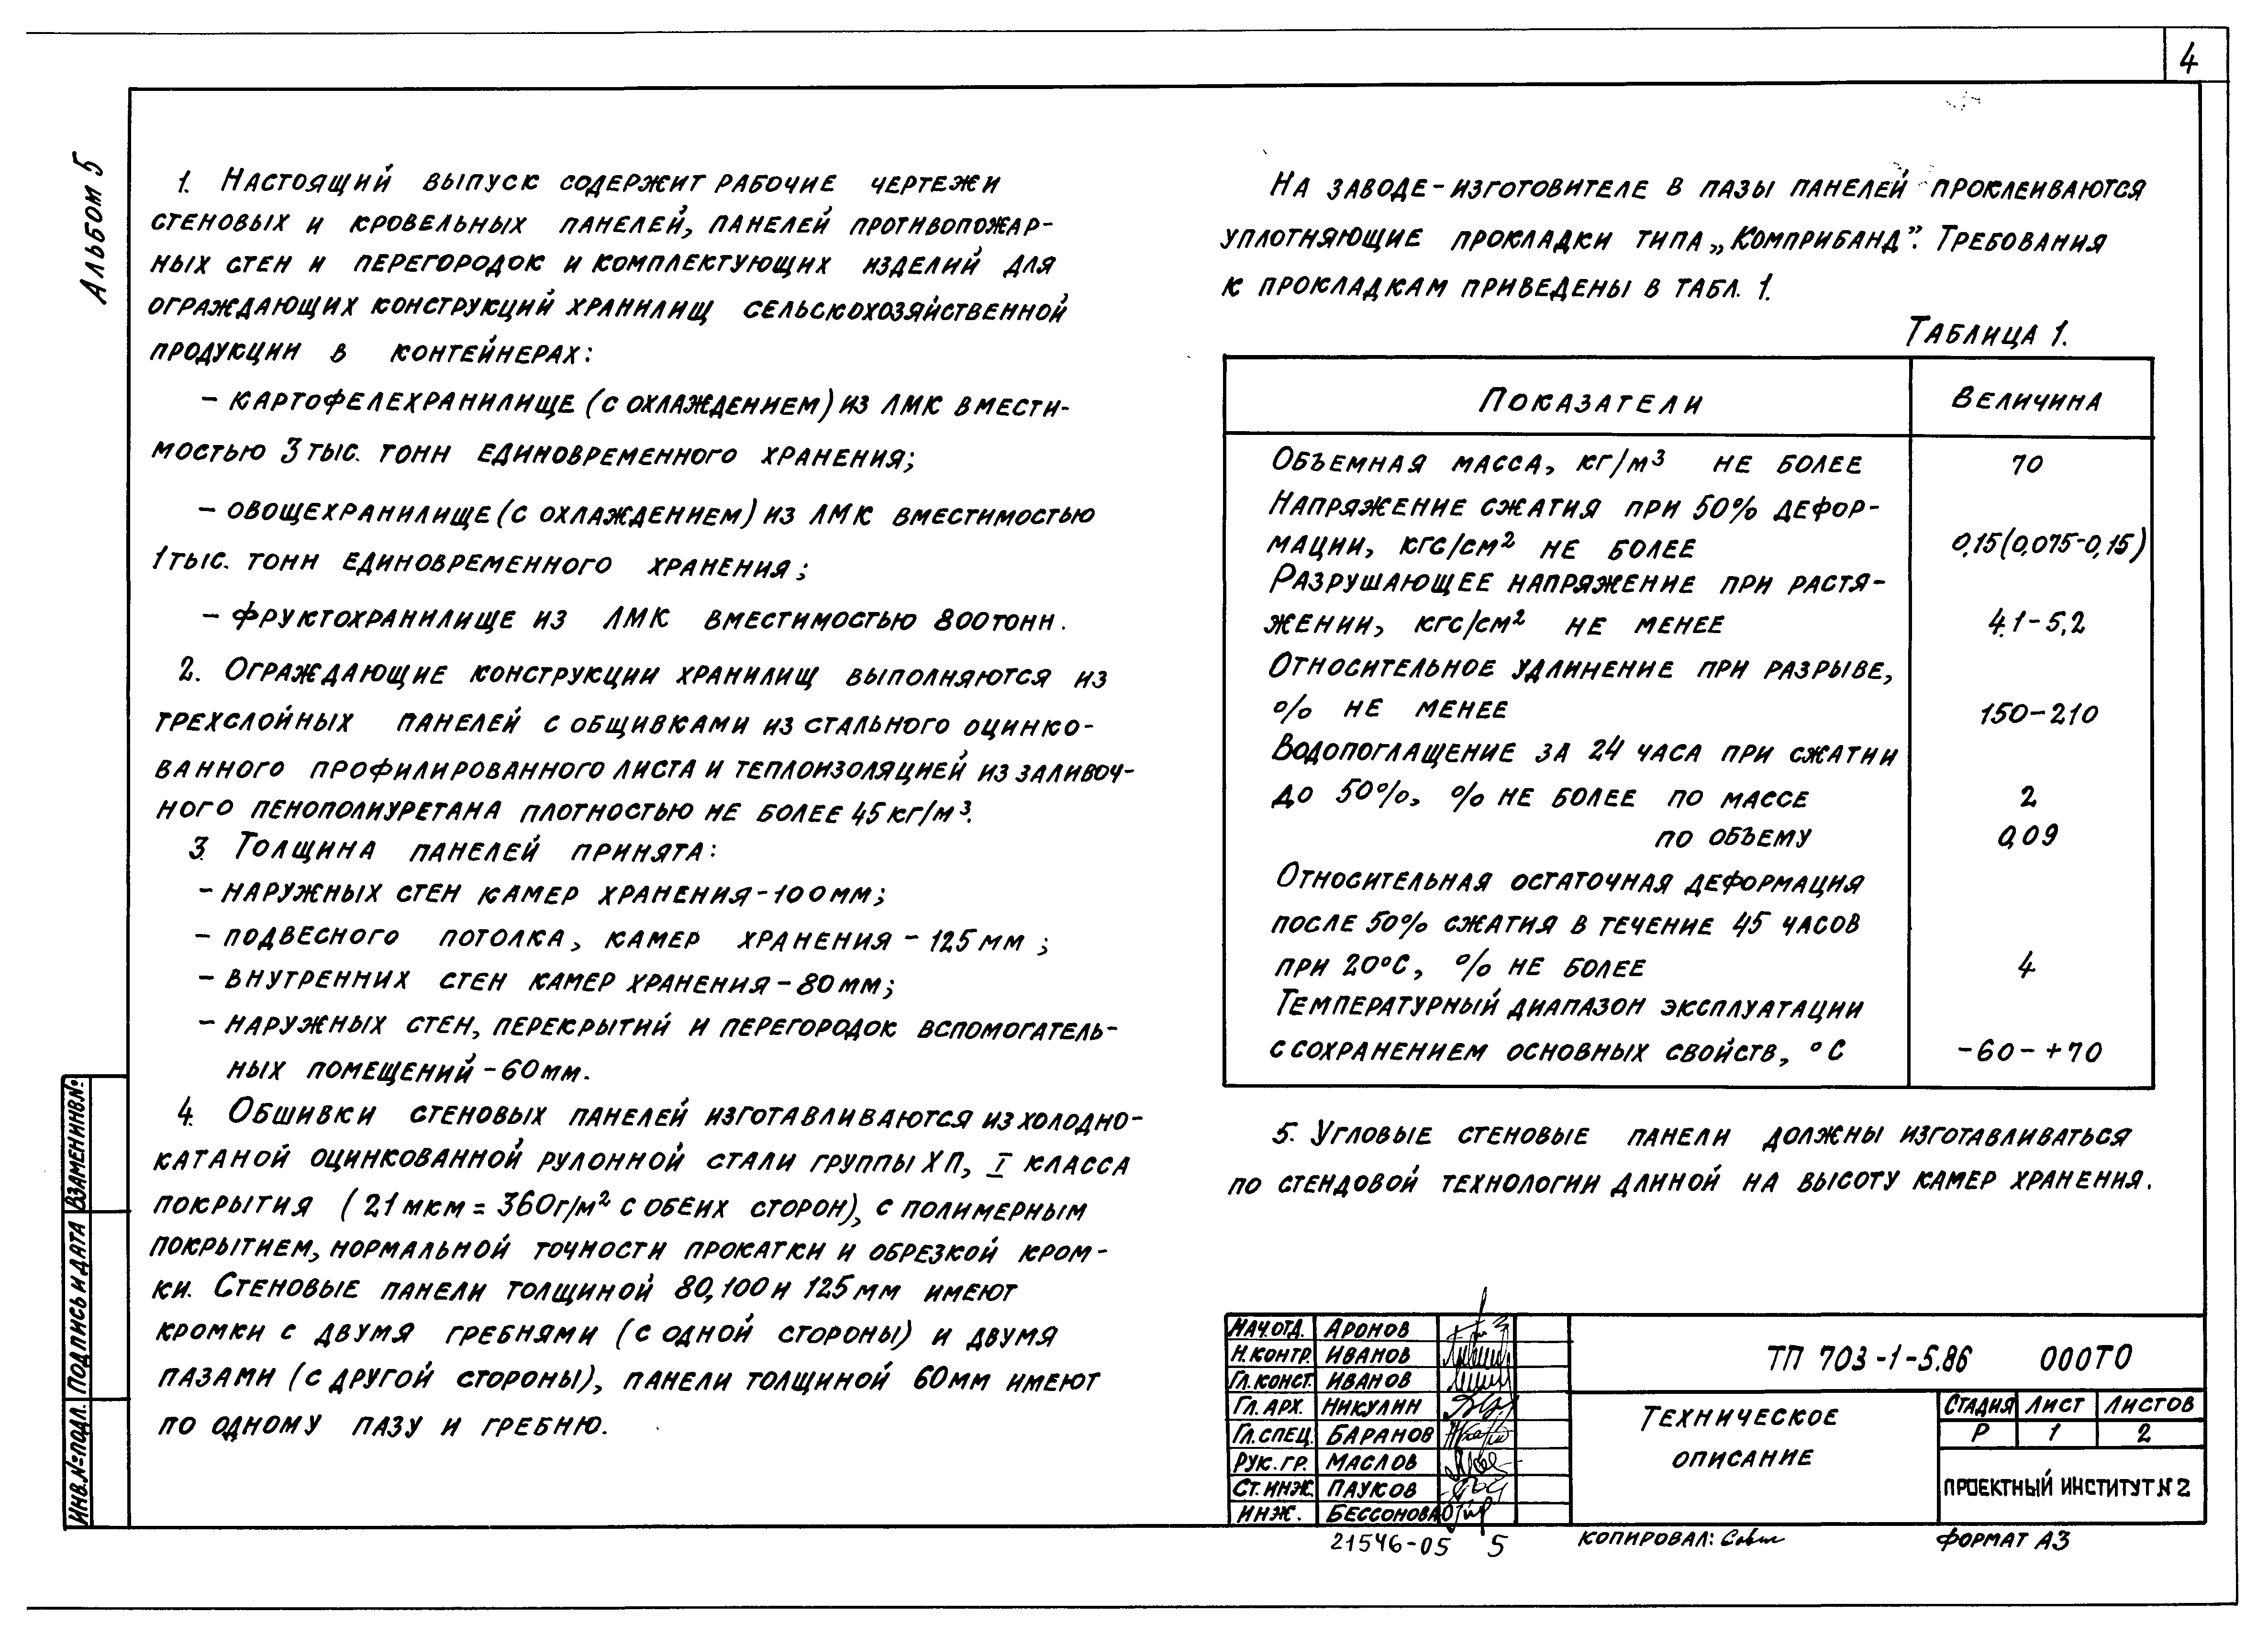 4
Альбом 5
1. Настоящий выпуск содержит рабочие чертежи
стеновых и кровельных панелей, панелей противопожар-
ных стен и перегородок и комплектующих изделий для
ограждающих конструкций хранилищ сельскохозяйственной
продукции в контейнерах:
– картофелехранилище (с охлаждением) из ЛМК вмести-
мостью 3 тыс. тонн единовременного хранения;
– овощехранилище (с охлаждением) из ЛМК вместимостью
1 тыс. тонн единовременного хранения;
– фруктохранилище из ЛМК вместимостью 800 тонн.
2. Ограждающие конструкции хранилищ выполняются из
трехслойных панелей с общивками из стального оцинко-
ванного профилированного листа и теплоизоляцией из заливоч-
ного пенополиуретана плотностью не более 45 кг/м³.
3. Толщина панелей принята:
– наружных стен камер хранения – 100 мм;
– подвесного потолка, камер хранения – 125 мм;
– внутренних стен камер хранения – 80 мм;
– наружных стен, перекрытий и перегородок вспомогатель-
ных помещений – 60 мм.
4. Обшивки стеновых панелей изготавливаются из холодно-
катаной оцинкованной рулонной стали группы ХП, I класса
покрытия (21 мкм = 360 г/м² с обеих сторон), с полимерным
покрытием, нормальной точности прокатки и обрезкой кром-
ки. Стеновые панели толщиной 80, 100 и 125 мм имеют
кромки с двумя гребнями (с одной стороны) и двумя
пазами (с другой стороны), панели толщиной 60 мм имеют
по одному пазу и гребню.
На заводе-изготовителе в пазы панелей проклеиваются
уплотняющие прокладки типа „Комприбанд". Требования
к прокладкам приведены в табл. 1.
Таблица 1.
Показатели Величина
Объемная масса, кг/м³ не более 70
Напряжение сжатия при 50% дефор-
мации, кгс/см² не более 0,15 (0,075-0,15)
Разрушающее напряжение при растя-
жении, кгс/см² не менее 4.1 – 5,2
Относительное удлинение при разрыве,
% не менее 150 – 210
Водопоглащение за 24 часа при сжатии
до 50%, % не более по массе 2
по объему 0,09
Относительная остаточная деформация
после 50% сжатия в течение 45 часов
при 20°С, % не более 4
Температурный диапазон эксплуатации
с сохранением основных свойств, °С –60 – +70
5. Угловые стеновые панели должны изготавливаться
по стендовой технологии длиной на высоту камер хранения.
Нач.отд. Аронов
Н.контр. Иванов
Гл.конст. Иванов
Гл.арх. Никулин
Гл.спец. Баранов
Рук.гр. Маслов
Ст.инж. Пауков
Инж. Бессонова
ТП 703-1-5.86 000ТО
Техническое
описание
Стадия Лист Листов
Р 1 2
Проектный институт N 2
21546-05 5
Копировал:
Формат А3
Взамен инв.№
Подпись и дата
Инв.№ подл.